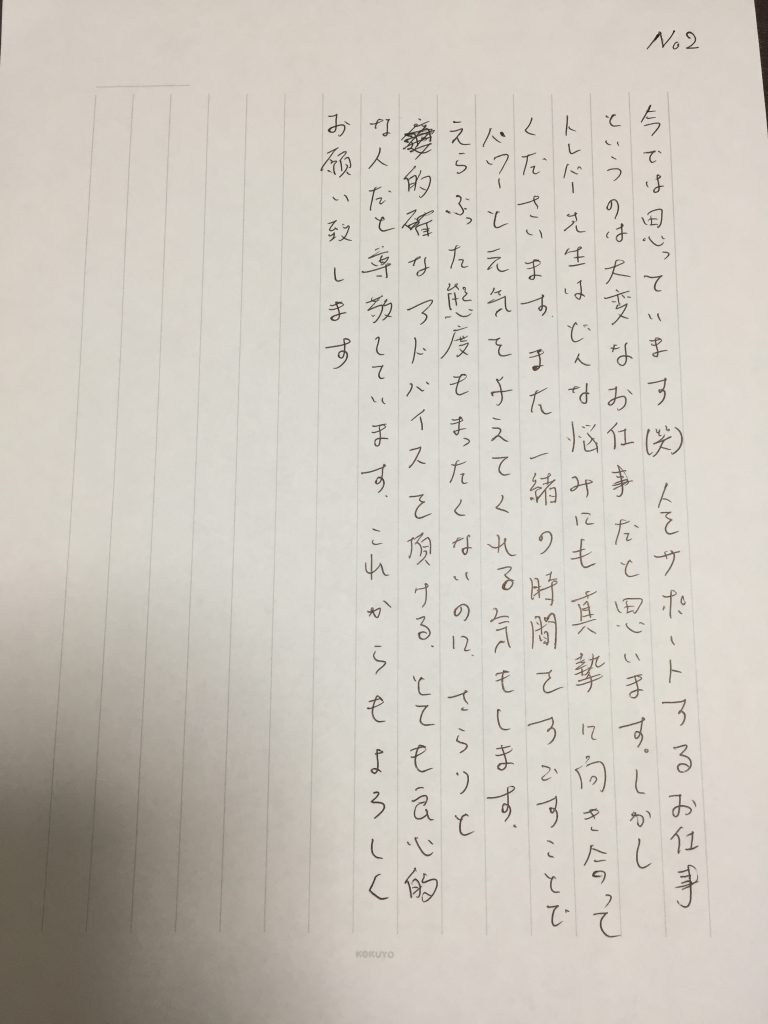 No2
今では思っています(笑)人をサポートするお仕事
というのは大変なお仕事だと思います。しかし
トレバー先生はどんな悩みにも真摯に向き合って
くださいます。また一緒の時間をすごすことで
パワーと元気を与えてくれる気もします。
えらぶった態度もまったくないのに、さらりと
的確なアドバイスを頂ける、とても良心的
な人だと尊敬しています。これからもよろしく
お願い致します
KOKUYO